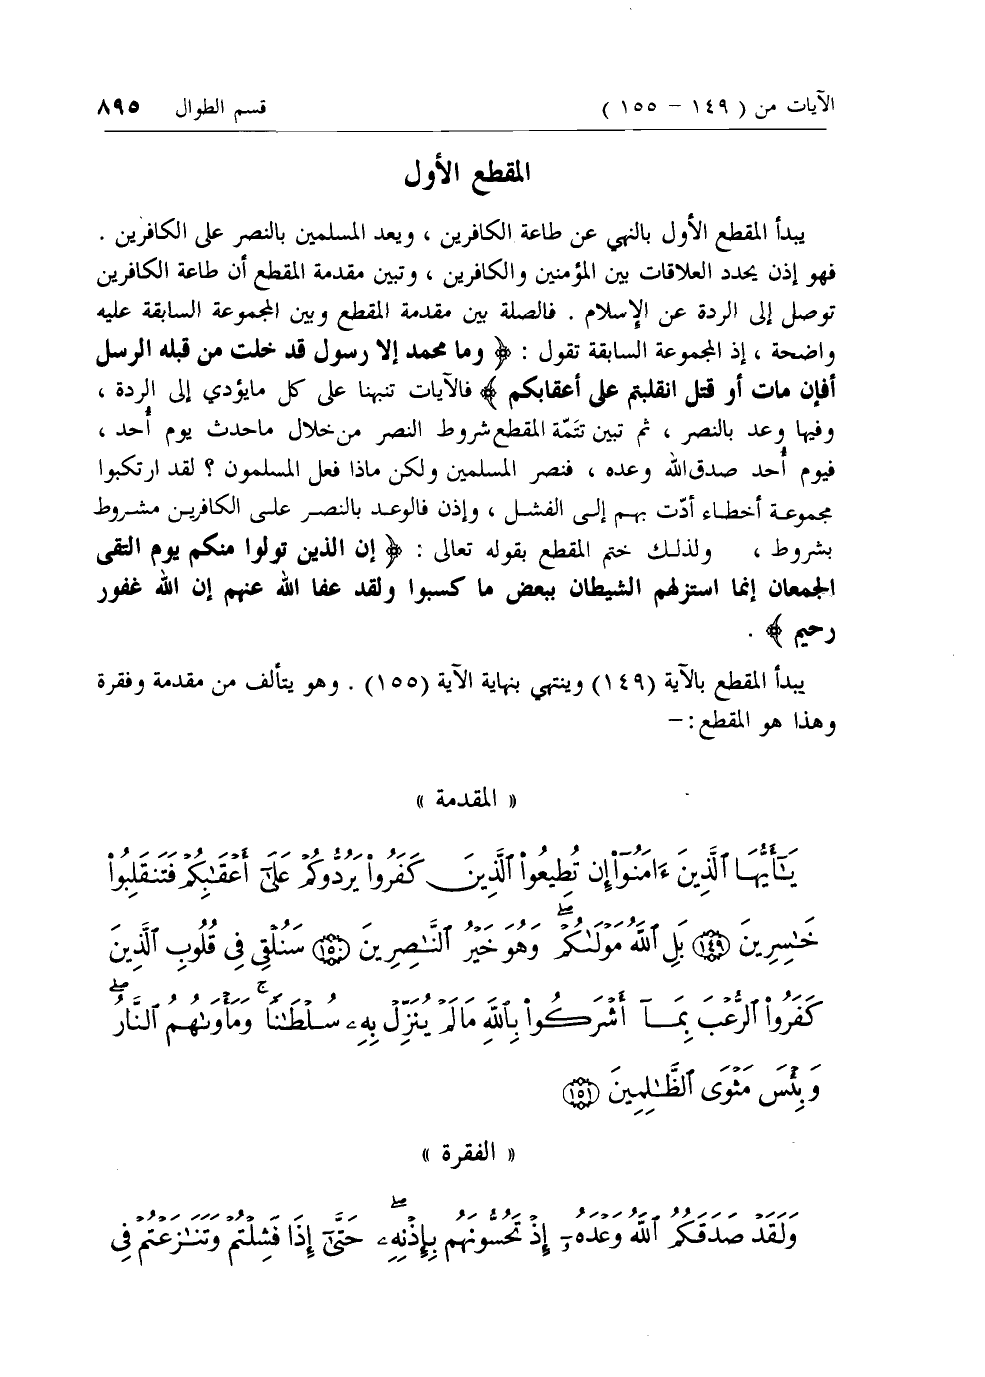 الآيات من ( ١٤٩ – ١٥٥ ) قسم الطوال ٨٩٥
المقطع الأول
يبدأ المقطع الأول بالنهي عن طاعة الكافرين ، ويعد المسلمين بالنصر على الكافرين .
فهو إذن يحدد العلاقات بين المؤمنين والكافرين ، وتبين مقدمة المقطع أن طاعة الكافرين
توصل إلى الردة عن الإسلام . فالصلة بين مقدمة المقطع وبين المجموعة السابقة عليه
واضحة ، إذ المجموعة السابقة تقول : ﴿ وما محمد إلا رسول قد خلت من قبله الرسل
أفإن مات أو قتل انقلبتم على أعقابكم ﴾ فالآيات تنبهنا على كل مايؤدي إلى الردة ،
وفيها وعد بالنصر ، ثم تبين تتَمّة المقطع شروط النصر من خلال ماحدث يوم أُحد ،
فيوم أُحد صدق الله وعده ، فنصر المسلمين ولكن ماذا فعل المسلمون ؟ لقد ارتكبوا
مجموعة أخطاء أدّت بهم إلى الفشل ، وإذن فالوعد بالنصر على الكافرين مشروط
بشروط ، ولذلك ختم المقطع بقوله تعالى : ﴿ إن الذين تولوا منكم يوم التقى
الجمعان إنما استزلهم الشيطان ببعض ما كسبوا ولقد عفا الله عنهم إن الله غفور
رحيم ﴾ .
يبدأ المقطع بالآية (١٤٩) وينتهي بنهاية الآية (١٥٥) . وهو يتألف من مقدمة وفقرة
وهذا هو المقطع : –
« المقدمة »
يَـٰٓأَيُّهَا ٱلَّذِينَ ءَامَنُوٓا۟ إِن تُطِيعُوا۟ ٱلَّذِينَ كَفَرُوا۟ يَرُدُّوكُمْ عَلَىٰٓ أَعْقَـٰبِكُمْ فَتَنقَلِبُوا۟
خَـٰسِرِينَ ١٤٩ بَلِ ٱللَّهُ مَوْلَىٰكُمْ ۖ وَهُوَ خَيْرُ ٱلنَّـٰصِرِينَ ١٥٠ سَنُلْقِى فِى قُلُوبِ ٱلَّذِينَ
كَفَرُوا۟ ٱلرُّعْبَ بِمَآ أَشْرَكُوا۟ بِٱللَّهِ مَا لَمْ يُنَزِّلْ بِهِۦ سُلْطَـٰنًا ۖ وَمَأْوَىٰهُمُ ٱلنَّارُ ۚ
وَبِئْسَ مَثْوَى ٱلظَّـٰلِمِينَ ١٥١
« الفقرة »
وَلَقَدْ صَدَقَكُمُ ٱللَّهُ وَعْدَهُۥٓ إِذْ تَحُسُّونَهُم بِإِذْنِهِۦ ۖ حَتَّىٰٓ إِذَا فَشِلْتُمْ وَتَنَـٰزَعْتُمْ فِى